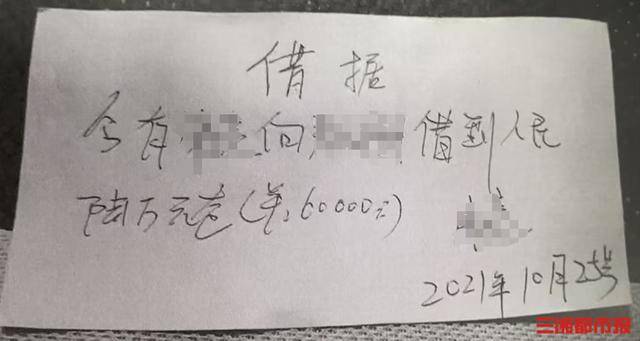 借据
今有 向 借到人民
陆万元整(￥:60000元)
2021年10月25号
三湘都市报